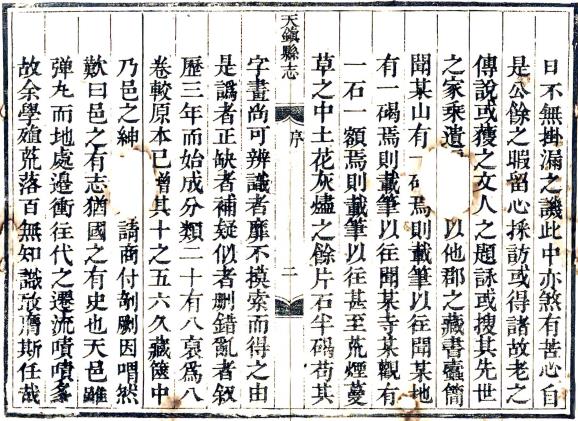 日不無掛漏之譏此中亦煞有苦心自
是公餘之暇留心採訪或得諸故老之
傳說或獲之文人之題詠或搜其先世
之家乘遺以他郡之藏書蠹簡
聞某山有一碑焉則載筆以往聞某地
有一碣焉則載筆以往聞某寺某觀有
一石一額焉則載筆以往甚至荒煙蔓
草之中土花灰燼之餘片石半碣苟其
天鎮縣志
序
二
字畫尚可辨識者靡不摸索而得之由
是譌者正缺者補疑似者刪錯亂者敘
歷三年而始成分類二十有八裒爲八
卷較原本已增其十之五六久藏篋中
乃邑之紳請商付剞劂因喟然
歎曰邑之有志猶國之有史也天邑雖
彈丸而地處邊衝往代之遷流嘖嘖多
故余學殖荒落百無知識敢膺斯任哉